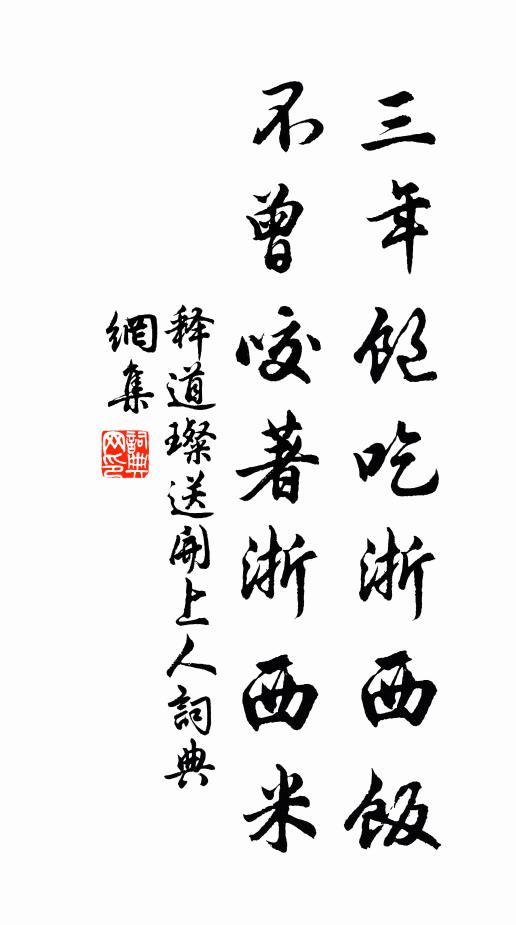 三年飽吃浙西飯
不曾咬著浙西米
釋道璨送開上人詞典
網集
詞典網印